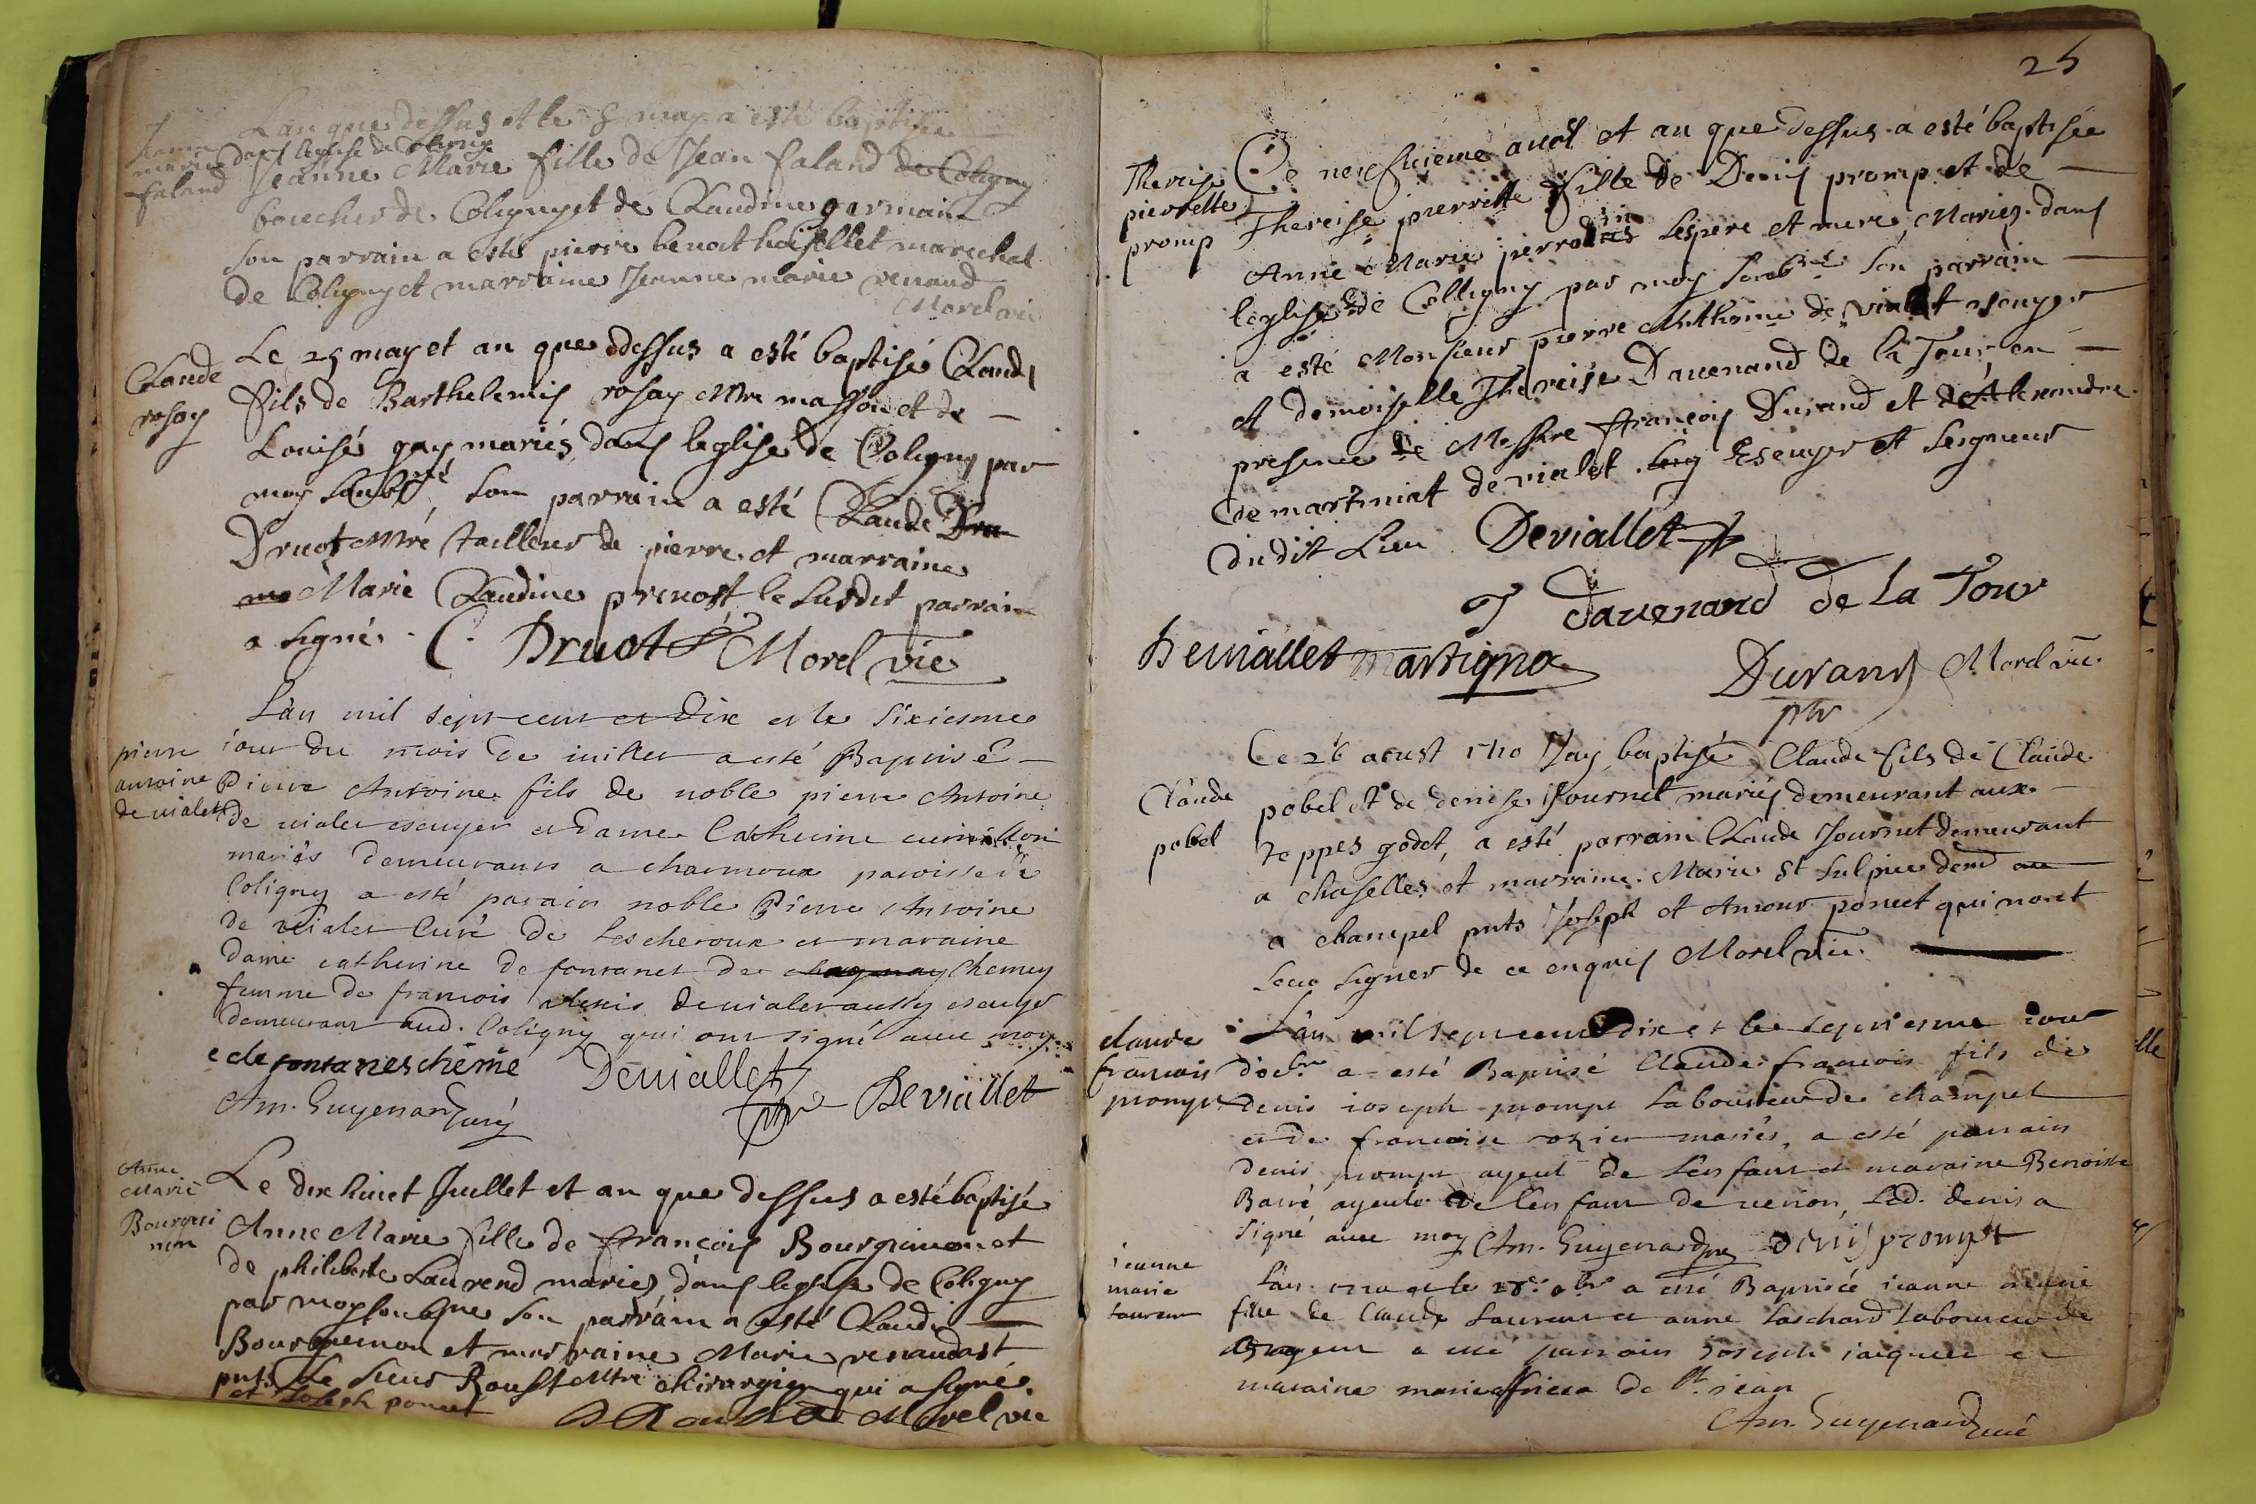 Lan que dessus et le 8 may a esté baptisée
dans leglise de Coligny
Jeanne Marie faland
Jeanne Marie fille de Jean faland de Coligny
boucher de Coligny et de Claudine germain
son parrain a esté pierre benoit marechal
de Coligny et marraine Jeanne marie renaud
Morel vic
Claude rosay
Le 25 may et an que dessus a esté baptisé Claude
fils de Barthelemy rosay Mtre masson et de
Louise gay mariés dans leglise de Coligny par
moy soubsné son parrain a esté Claude Dru
Druot Mtre tailleur de pierre et marraine
ma Marie Claudine prevost le susdit parrain
a signé. C. Druot Morel vic
Lan mil sept cent et dix et le sixiesme
pierre antoine de vialet
iour du mois de iuillet a esté Baptisé
Pierre Antoine fils de noble pierre Antoine
de vialet escuyer et dame Catherine
mariés demeurants a charmoux paroisse de
Coligny a esté parain noble Pierre Antoine
de vialet Curé de Lescheroux et maraine
Dame catherine de fontanes de Chemey
femme de francois alexis devialet aussy escuyer
demeurant aud. Coligny qui ont signé avec moy
c de fontanes chémé Deviallet ptr Deviallet
Am. Guyenard curé
Anne Marie Bourguinon
Le dix huict Juillet et an que dessus a esté baptisé
Anne Marie fille de françois Bourguinon et
de philiberte Laurend mariés dans leglise de Coligny
par moy soubsgne son parrain a esté Claude
Bourguinon et marraine Marie renaudast
pnts Le sieur Roust Mtre chirurgien qui a signé
et Joseph poncet Morel vic
25
Thereise pierrette promp
Ce neufuieme aout et an que dessus a esté baptisée
Thereise pierrette fille de Denis promp et de
Anne Marie perrodin ses pere et mere Mariez dans
leglise de Colligny par moy soubné son parrain
a esté Monsieur pierre Anthoine de vialet escuyer
et demoiselle Thereise Dauenand de la Tour en
presence de Messire françois Durand et de Alexandre
de martiniat de vialet Escuyer et seigneur
dudit Lieu Deviallet
T Dauenand De La Tour
Deuiallet martigna Durand ptr Morel vic
Claude pobel
Ce 26 aoust 1710 Jay baptisé Claude fils de Claude
pobel et de denise Journet mariés demeurant aux
teppes godet, a esté parrain Claude Journet demeurant
a chaselles et marraine Marie St Sulpice demt au
a champel pnts Joseph et Amour poncet qui nont
sceu signer de ce enquis Morel vic
claude francois prompt
Lan mil sept cent dix et le septiesme iour
d'oc.bre a esté Baptisé Claude francois fils de
denis ioseph prompt Laboureur de champel
et de francoise rozier mariés, a esté parrain
denis prompt ayeul de l'enfant et maraine Benoiste
Barré ayeule de l'enfant de verion, Led. denis a
signé avec moy Am. Guyenard curé denis prompt
ieanne marie laurent
Lan 1710 et le 28e 8bre a esté Baptisée ieanne marie
fille de Claude Laurent et anne Laschard Laboureur de
a esté parrain Joseph iacquet et
maraine marie de St iean
Am. Guyenard curé